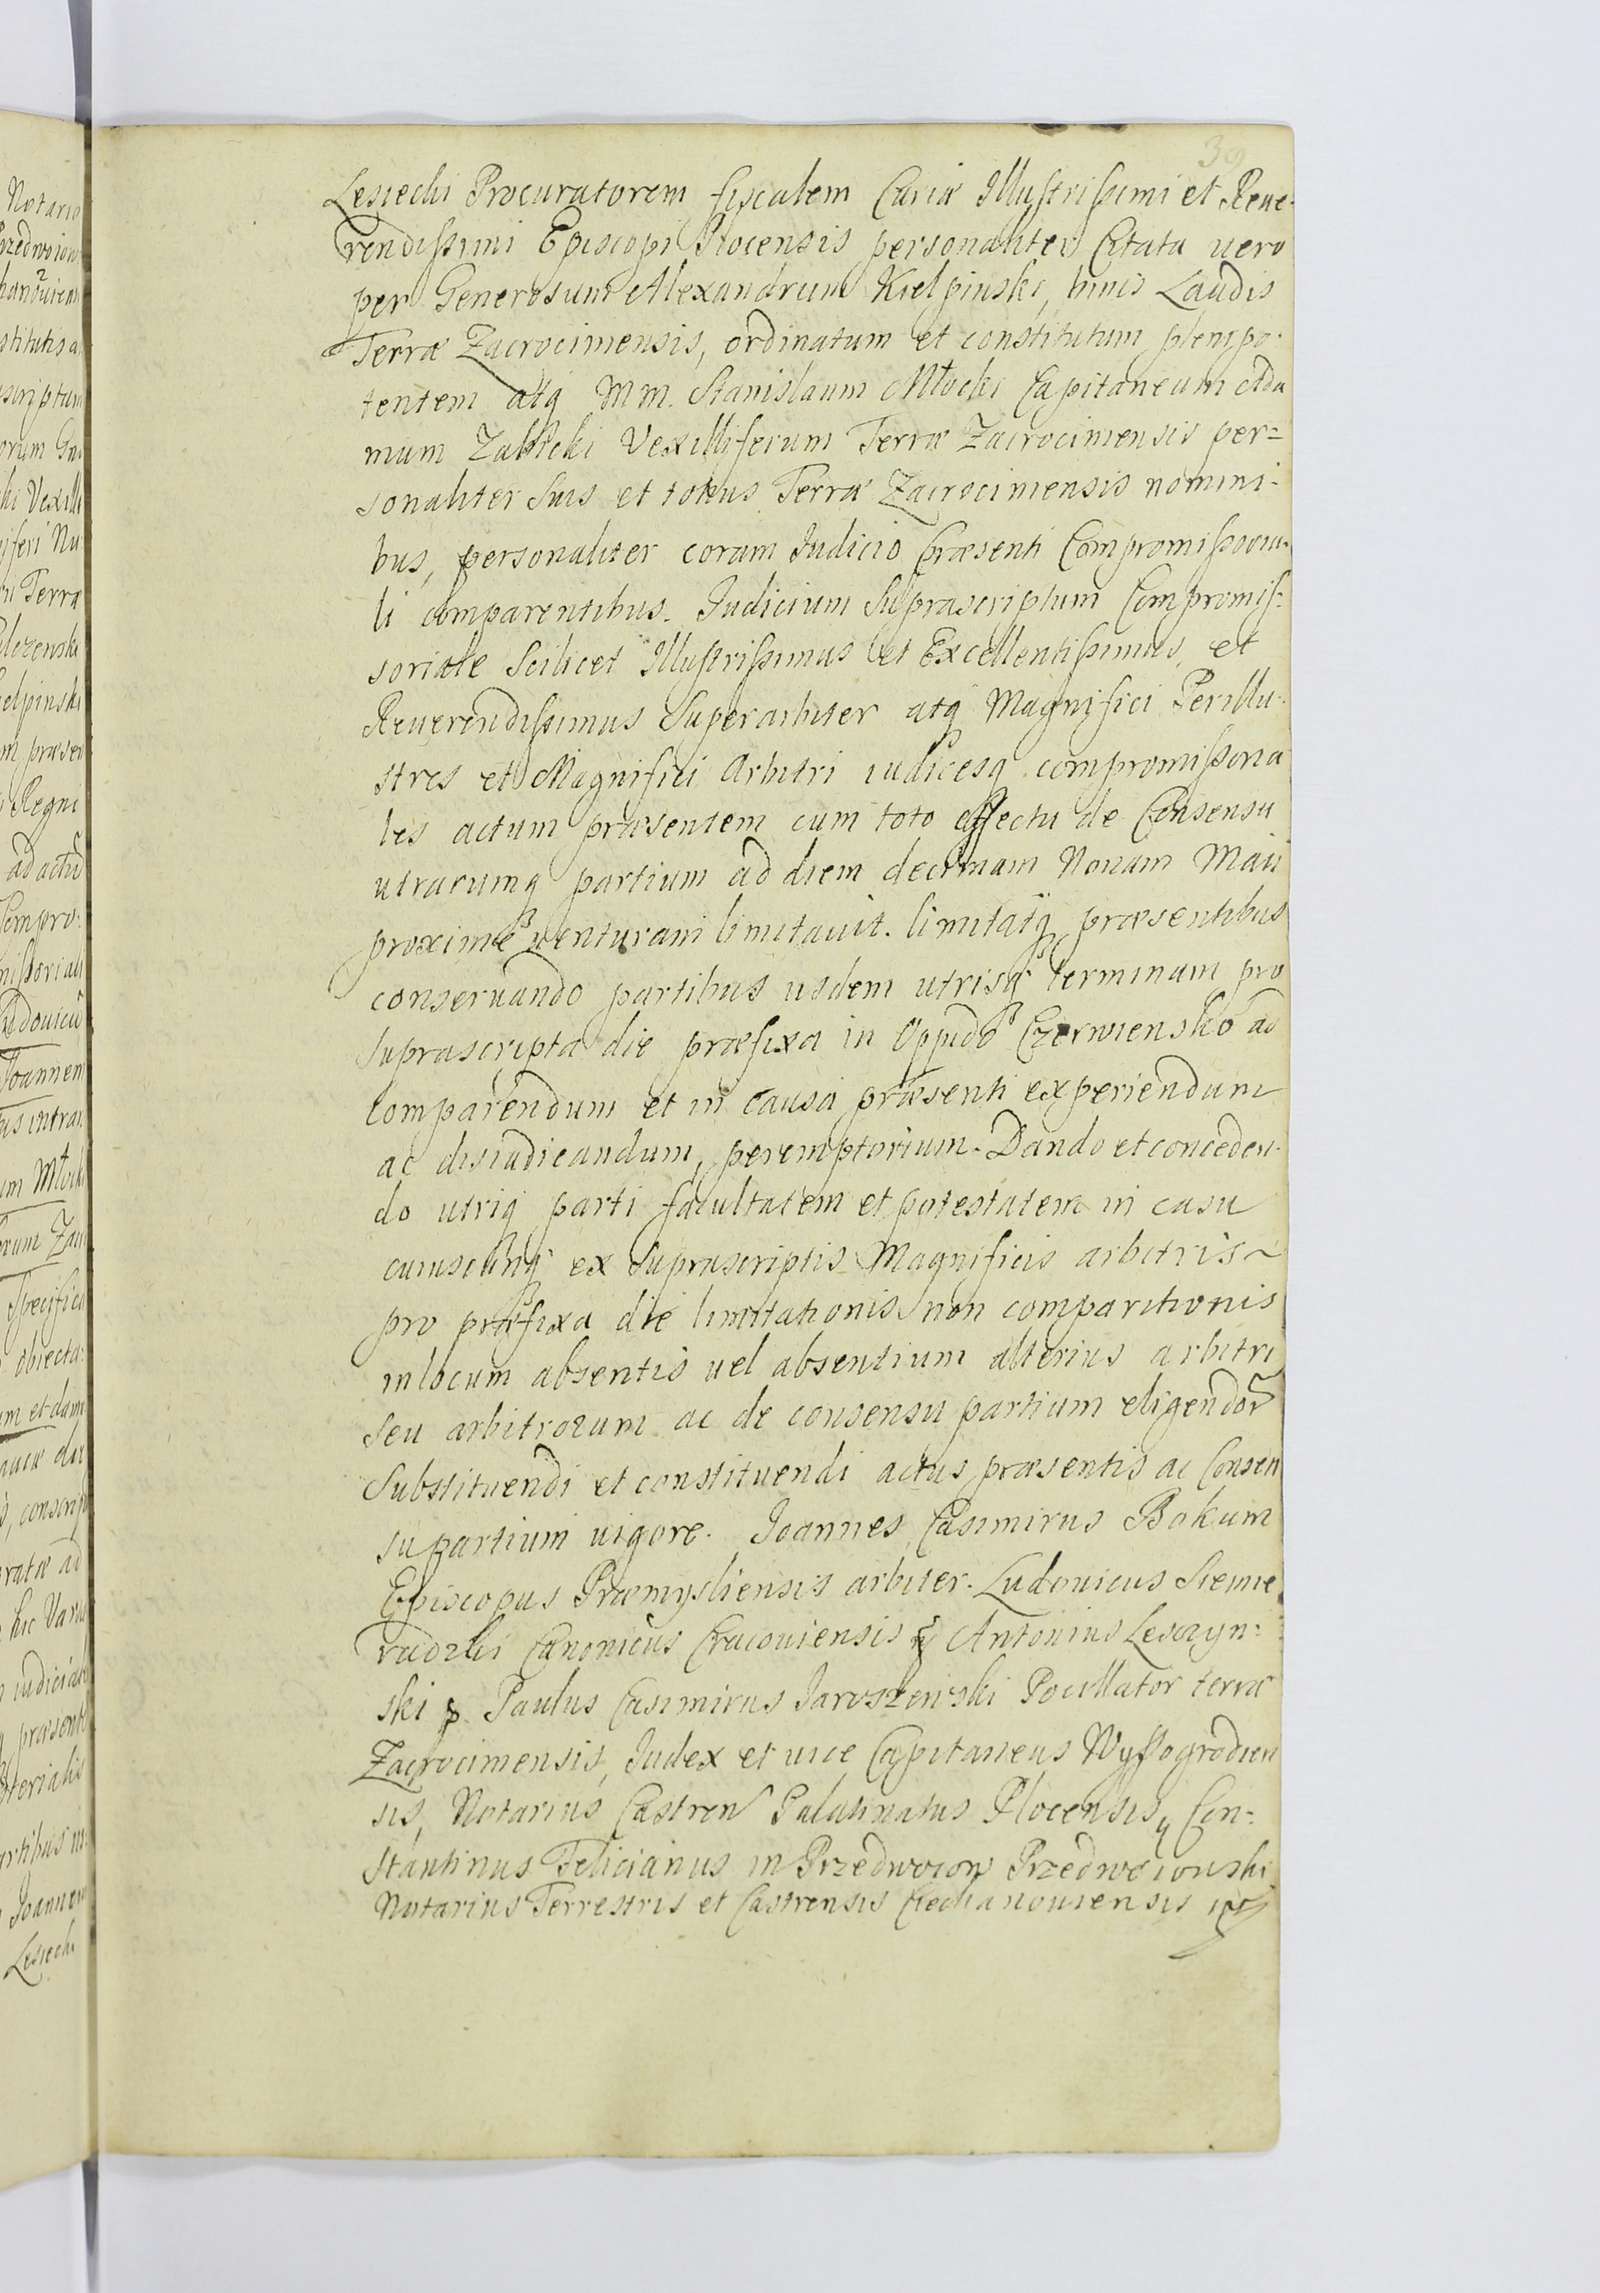 39
Lesiecki Procuratorem fiscalem Curiæ Illustrissimi et Reue-
rendissimi Episcopi Plocensis personaliter Citata uero
per Generosum Alexandrum Kielpinski, huius Laudis
Terræ Zacrocimensis, ordinatum et constitutum plenipo-
tentem atq MM. Stanislaum Młocki Capitaneum Ada
mum Zabicki Vexilliferum Terræ Zacrocimensis per=
sonaliter Suis et totius Terræ Zacrocimensis nomini-
bus, personaliter coram Iudicio Præsenti Compromissoria-
li comparentibus. Iudicium Supra scriptum Compromis-
soriale Scilicet Illustrissimus et Excellentissimus, et
Reuerendissimus Superarbiter atq Magnifici Perillu-
stres et Magnifici Arbitri iudicesq compromissoria
les actum præsentem cum toto effectu de Consensu
utrarumq partium ad diem decimam Nonam Maii
proxime uenturam limitauit. limitatq præsentibus
conseruando partibus iisdem utrisq terminum pro
suprascripta die præfixa in Oppido Czerwiensko ad
comparendum et in causa præsenti experiendum
ac disiudicandum, peremptorium. Dando et conceden-
do utriq parti facultatem et potestatem in casu
cuiuscunq ex Suprascriptis Magnificis arbitris
pro præfixa die limitationis non comparitionis
in locum absentis uel absentium alterius arbitri
seu arbitrorum ac de consensu partium eligendor
Substituendi et constituendi actus præsentis ac Consen
su partium uigore. Ioannes Casimirus Bokum
Episcopus Præmysliensis arbiter. Ludouicus Siemie
radzki Canonicus Cracouiensis Antonius Lesczyn-
ski Paulus Casimirus Iaroszewski Pocillator terræ
Zacrocimensis, Iudex et uice Capitaneus Wyssogrodien
sis, Notarius Castren Palatinatus Plocensis, Con-
stantinus Felicianus in Przedwoiow Przedwoiowski
Notarius Terrestris et Castrensis Ciechanouiensis